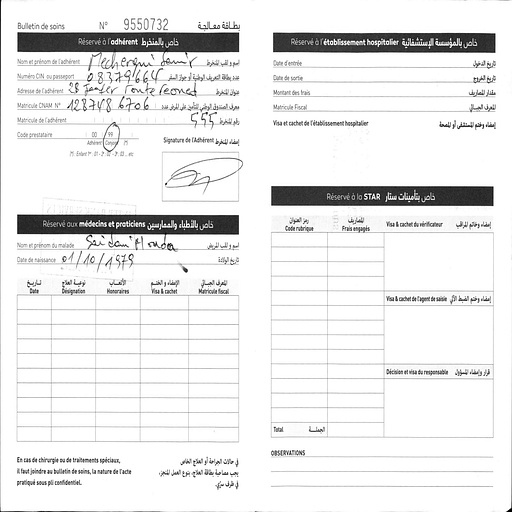 Bulletin de soins N° 9550732 بطاقة معالجة
Réservé à l'adhérent خاص بالمنخرط
Nom et prénom de l'adhérent Mecherguí Samir إسم و لقب المنخرط
Numéro CIN ou passeport 08379664 عدد بطاقة التعريف الوطنية أو جواز السفر
Adresse de l'adhérent عنوان المنخرط
Matricule CNAM N° 128748 6706
Matricule de l'adhérent 555 رقم المنخرط
Code prestataire 00 99
Adhérent Conjoint
Signature de l'Adhérent إمضاء المنخرط
Réservé aux médecins et praticiens خاص بالأطباء والممارسين
Nom et prénom du malade Saidani Monda إسم و لقب المريض
Date de naissance 01/10/1979 تاريخ الولادة
تاريخ نوعية العلاج الأتعاب الإمضاء و الختم المعرف الجبائي
Date Désignation Honoraires Visa & cachet Matricule fiscal
En cas de chirurgie ou de traitements spéciaux,
il faut joindre au bulletin de soins, la nature de l'acte
pratiqué sous pli confidentiel.
في حالات الجراحة أو العلاج الخاص
يجب مصاحبة بطاقة العلاج، بنوع العمل المنجز،
في ظرف سري.
Réservé à l'établissement hospitalier خاص بالمؤسسة الإستشفائية
Date d'entrée تاريخ الدخول
Date de sortie تاريخ الخروج
Montant des frais مقدار المصاريف
Matricule Fiscal المعرف الجبائي
Visa et cachet de l'établissement hospitalier إمضاء وختم المستشفى أو المصحة
Réservé à la STAR خاص بتأمينات ستار
رمز العنوان المصاريف
Code rubrique Frais engagés
Visa & cachet du vérificateur إمضاء وخاتم المراقب
Visa & cachet de l'agent de saisie إمضاء وختم الضبط الآلي
Décision et visa du responsable قرار وإمضاء المسؤول
Total الجملة
OBSERVATIONS